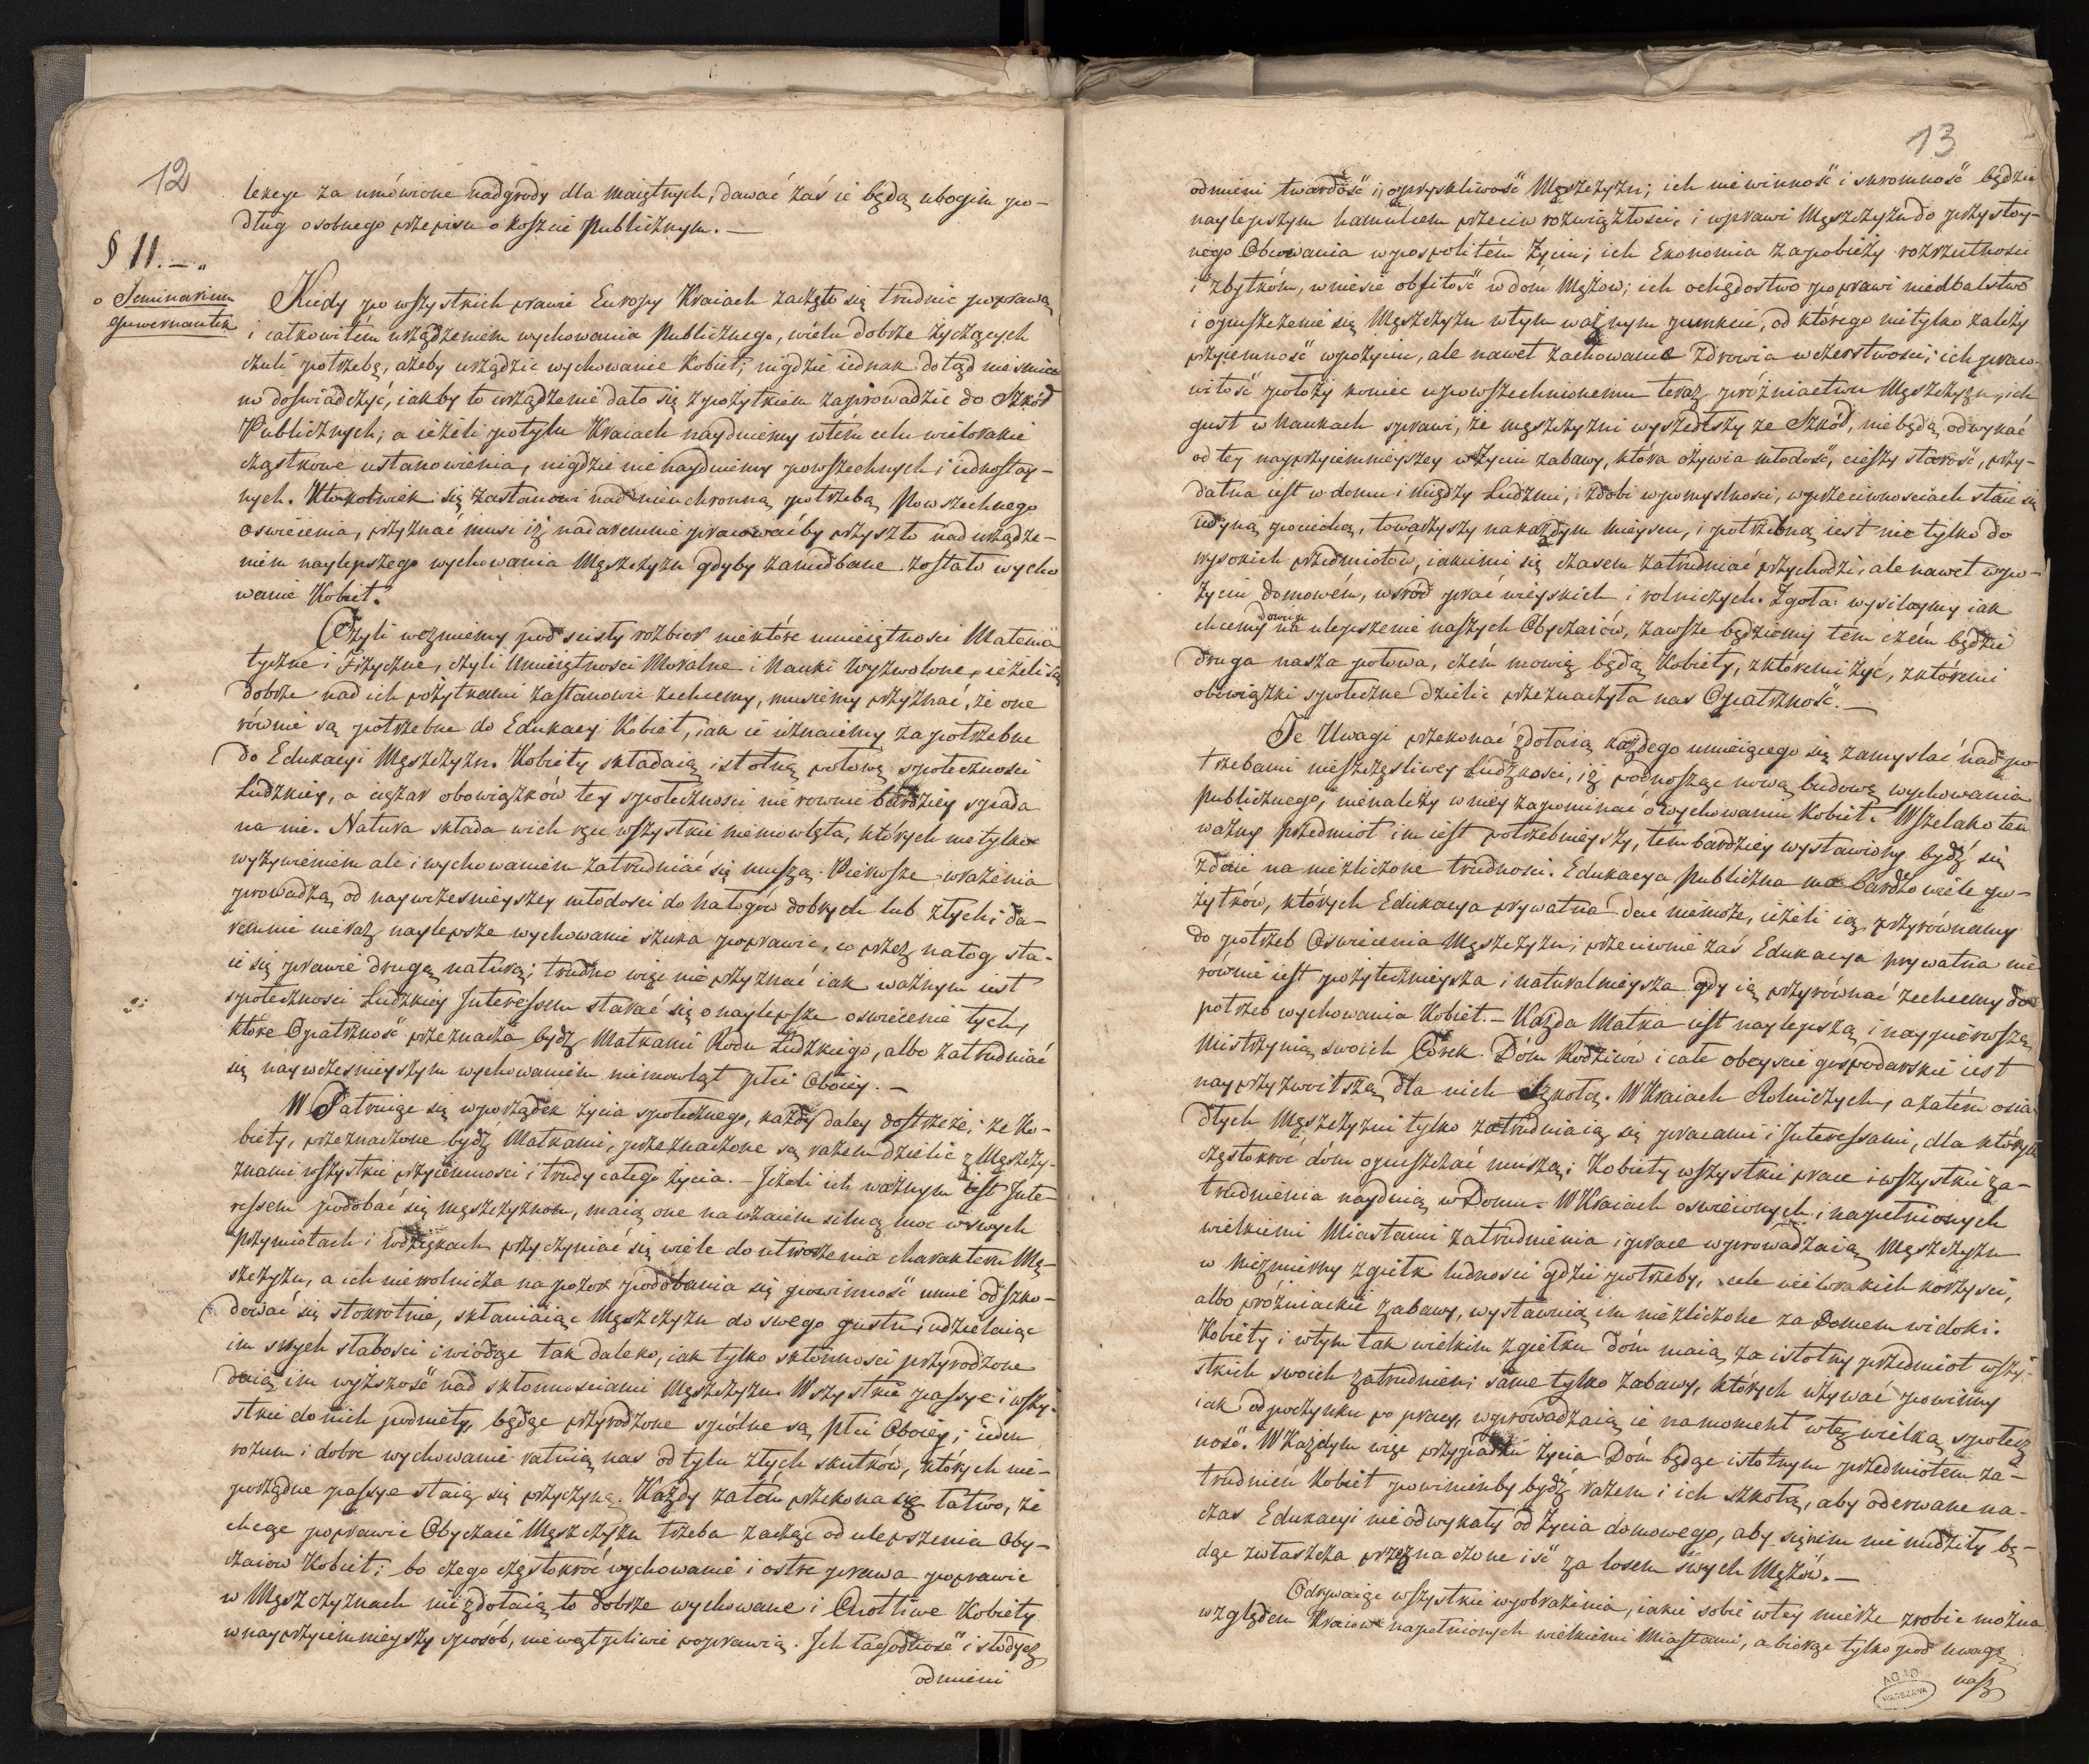 12
lekcye za umówione nadgrody dla maiętnych, dawać zaś ie będą ubogim po-
dług osobnego przepisu o koszcie Publicznym. —
§ II. — „
o Seminarium
Guwernantek
Kiedy po wszystkich prawie Europy Kraiach zaczęto się trudnić poprawą
i całkowitém urządzeniem wychowania Publicznego, wielu dobrze życzących
czuli potrzebę, ażeby urządzić wychowanie Kobiet; nigdzie iednak dotąd nie
no doświadczyć, iakby to urządzenie dało się z pożytkiem zaprowadzić do Szkół
Publicznych; a ieżeli po tylu Kraiach naydziemy w tém celu wielorakie
cząstkowe ustanowienia, nigdzie nie naydziemy powszechnych i iednostay-
nych. Ktokolwiek się zastanowi nad nieuchronną potrzebą Powszechnego
oświecenia, przyznać musi iż nadaremnie pracowaćby przyszło nad urządze-
niem naylepszego wychowania Męszczyzn gdyby zaniedbane zostało wycho
wanie Kobiet.
Czyli weźmiemy pod ścisły rozbior niektóre umieiętności Matema
tyczne i Fizyczne, czyli Umieiętności Moralne i Nauki Wyzwolone, ieżeli się
dobrze nad ich pożytkami zastanowić zechcemy, musiemy przyznać, że one
równie są potrzebne do Edukacyi Kobiet, iak ie uznaiemy za potrzebne
do Edukacyi Męszczyzn. Kobiety składaią istotną połowę społeczności
Ludzkiey, a ciężar obowiązków tey społeczności nie rownie bardziey spada
na nie. Natura składa w ich ręce wszystkie niemowlęta, których nie tylko
wyżywieniem ale i wychowaniem zatrudniać się muszą. Pierwsze wrażenia
prowadzą od naywcześnieyszey młodości do nałogów dobrych lub złych; da-
remnie nieraz naylepsze wychowanie szuka poprawić, co przez nałog sta-
ie się prawie drugą naturą; trudno więc nie przyznać iak ważnym iest
społeczności Ludzkiey Interessem starać się o naylepsze oświecenie tych,
które Opatrzność przeznacza bydź Matkami Rodu Ludzkiego, albo zatrudniać
się naywcześnieyszym wychowaniem niemowląt płci Oboiey. —
W Patruiąc się w porządek życia społecznego, każdy daley dostrzeże, że Ko-
biety, przeznaczone bydź Matkami, przeznaczone są razem dzielić z Męszczy-
znami wszystkie przyiemności i trudy całego życia. — Jeżeli ich ważnym iest Inte-
ressem podobać się męszczyznom, maią one nawzaiem silną moc w swych
przymiotach i wdziękach przyczyniać się wiele do utworzenia charakteru Mę-
szczyzn, a ich niewolnicza na pozor podobania się powinność umie odszko-
dować się stokrotnie, skłaniaiąc Męszczyzn do swego gustu, udzielaiąc
im swych słabości i wiodąc tak daleko, iak tylko skłonności przyrodzone
daią im wyższość nad skłonnościami Męszczyzn. Wszystkie passye i wszy-
stkie do nich podniety, będąc przyrodzone spólne są płci Oboiey; ieden
rozum i dobre wychowanie ratuią nas od tylu złych skutków, których nie-
porządne passye staią się przyczyną. Każdy zatém przekona się łatwo, że
chcąc poprawić Obyczaie Męszczyzn trzeba zacząć od ulepszenia Oby-
czaiow Kobiet; bo czego częstokroć wychowanie i ostre prawa poprawić
w Męszczyznach nie zdołaią, to dobrze wychowane i Cnotliwe Kobiety
w nayprzyiemnieyszy sposób, niewątpliwie poprawią. Ich łagodność i słodycz
odmieni
13
odmieni twardość i opryskliwość Męszczyzn; ich niewinność i skromność będzie
naylepszym hamulcem przeciw rozwiązłości, i wprawi Męszczyzn do przystoy-
nego Obcowania w pospolitém życiu; ich Ekonomia zapobieży rozrzutności
i zbytkóm, wniesie obfitość w dóm Mężow; ich ochędostwo poprawi niedbalstwo
i opuszczenie się Męszczyzn w tym ważnym punkcie, od którego nietylko zależy
przyiemność w pożyciu, ale nawet zachowanie zdrowia w czerstwości; ich praco-
witość położy koniec upowszechnionemu teraz próżniactwu Męszczyzn, ich
gust w Naukach sprawi, że męszczyzni wyszedłszy ze Szkół, nie będą odwykać
od tey nayprzyiemnieyszey w życiu zabawy, która ożywia młodość, cieszy starość, przy-
datna iest w domu i między Ludzmi, i zdobi w pomyslności, w przeciwnościach staie się
iedyną pociechą, towarzyszy na każdym mieyscu, i potrzebną iest nie tylko do
wysokich przedmiotów, iakiemi się czasem zatrudniać przychodzi, ale nawet w po-
życiu domowém, wsród prac wieyskich i rolniczych. Zgoła: wysilaymy iak
chcemy dowcip na ulepszenie naszych Obyczaiów, zawsze będziemy tém czém będzie
druga nasza połowa, czém mowię będą Kobiety, z któremi żyć, z któremi
obowiązki społeczne dzielić przeznaczyła nas Opatrzność. —
Te Uwagi przekonać zdołaią każdego umieiącego się zamyslać nad po-
trzebami nieszczęśliwey Ludzkości, iż podnosząc nową budowę wychowania
Publicznego, nienależy w niey zapominać o wychowaniu Kobiet. Wszelako ten
ważny przedmiot im iest potrzebnieyszy, tem bardziey wystawiony bydź się
zdaie na niezliczone trudności. Edukacya Publiczna ma bardzo wiele po-
żytków, których Edukacya prywatna dać niemoże, ieżeli ią przyrównamy
do potrzeb Oświecenia Męszczyzn; przeciwnie zaś Edukacya prywatna nie
równie iest pożytecznieysza i naturalnieysza gdy ią przyrównać zechcemy do
potrzeb wychowania Kobiet. — Każda Matka iest naylepszą i naypierwszą
Mistrzynią swoich Córek. Dóm Rodziców i całe obeyscie gospodarskie iest
nayprzyzwoitszą dla nich Szkołą. W Kraiach Rolniczych, a zatém osia-
dłych Męszczyzni tylko zatrudniaią się pracami i Interessami, dla których
częstokroć dóm opuszczać muszą; Kobiety wszystkie prace i wszystkie za-
trudnienia naydują w Domu. W Kraiach oświeconych i napełnionych
wielkiemi Miastami zatrudnienia i prace wyprowadzaią Męszczyzn
w niezmierny zgiełk ludności gdzie potrzeby, cele wielorakich korzyści,
albo próżniackie zabawy, wystawuią im niezliczone za Domem widoki.
Kobiety i w tym tak wielkim zgiełku dóm maią za istotny przedmiot wszy-
stkich swoich zatrudnień; same tylko zabawy, których używać powinny
iak odpoczynku po pracy, wyprowadzaią ie na moment w tę wielką społecz
ność. W Każdym więc przypadku życia Dóm będąc istotnym przedmiotem za-
trudnień Kobiet powinienby bydź razem i ich szkołą, aby oderwane na-
czas Edukacyi nie odwykały od życia domowego, aby się nim nie nudziły bę-
dąc zwłaszcza przeznaczone iść za losem swych Mężów. —
Odrywaiąc wszystkie wyobrażenia, iakie sobie w tey mierze zrobić można
względem Kraiow napełnionych wielkiemi Miastami, a biorąc tylko pod uwagę
nasz
AGAD
WARSZAWA